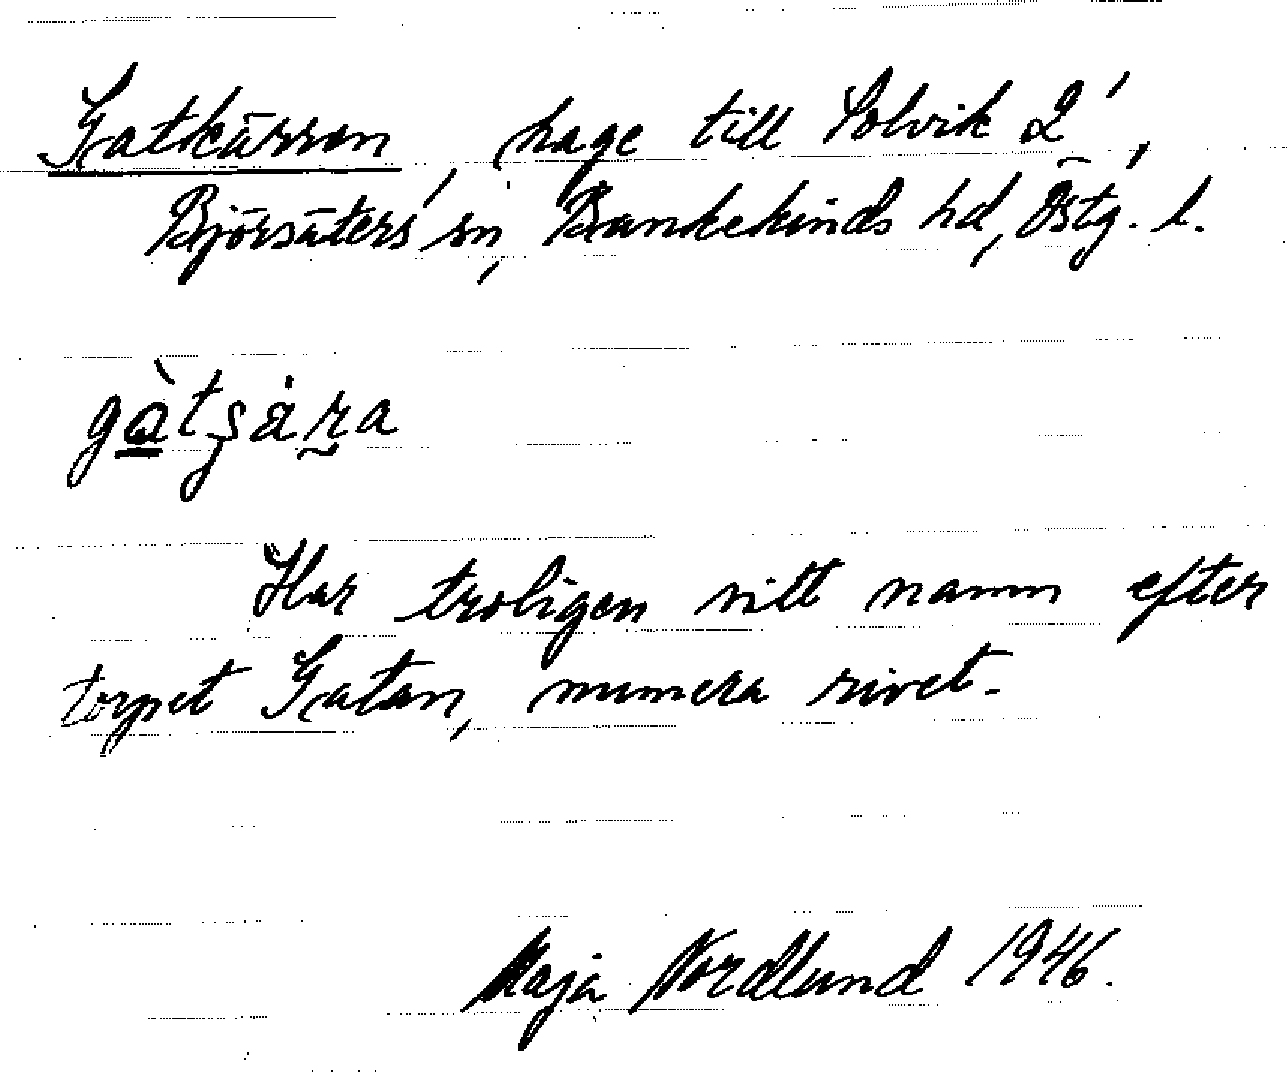 Gatkärren hage till Solvik 2',
Björsäters sn, Bankekinds hd, Östg. l.
Har troligen sitt namn efter
torpet Gatan, numera rivet.
Maja Nordlund 1946.